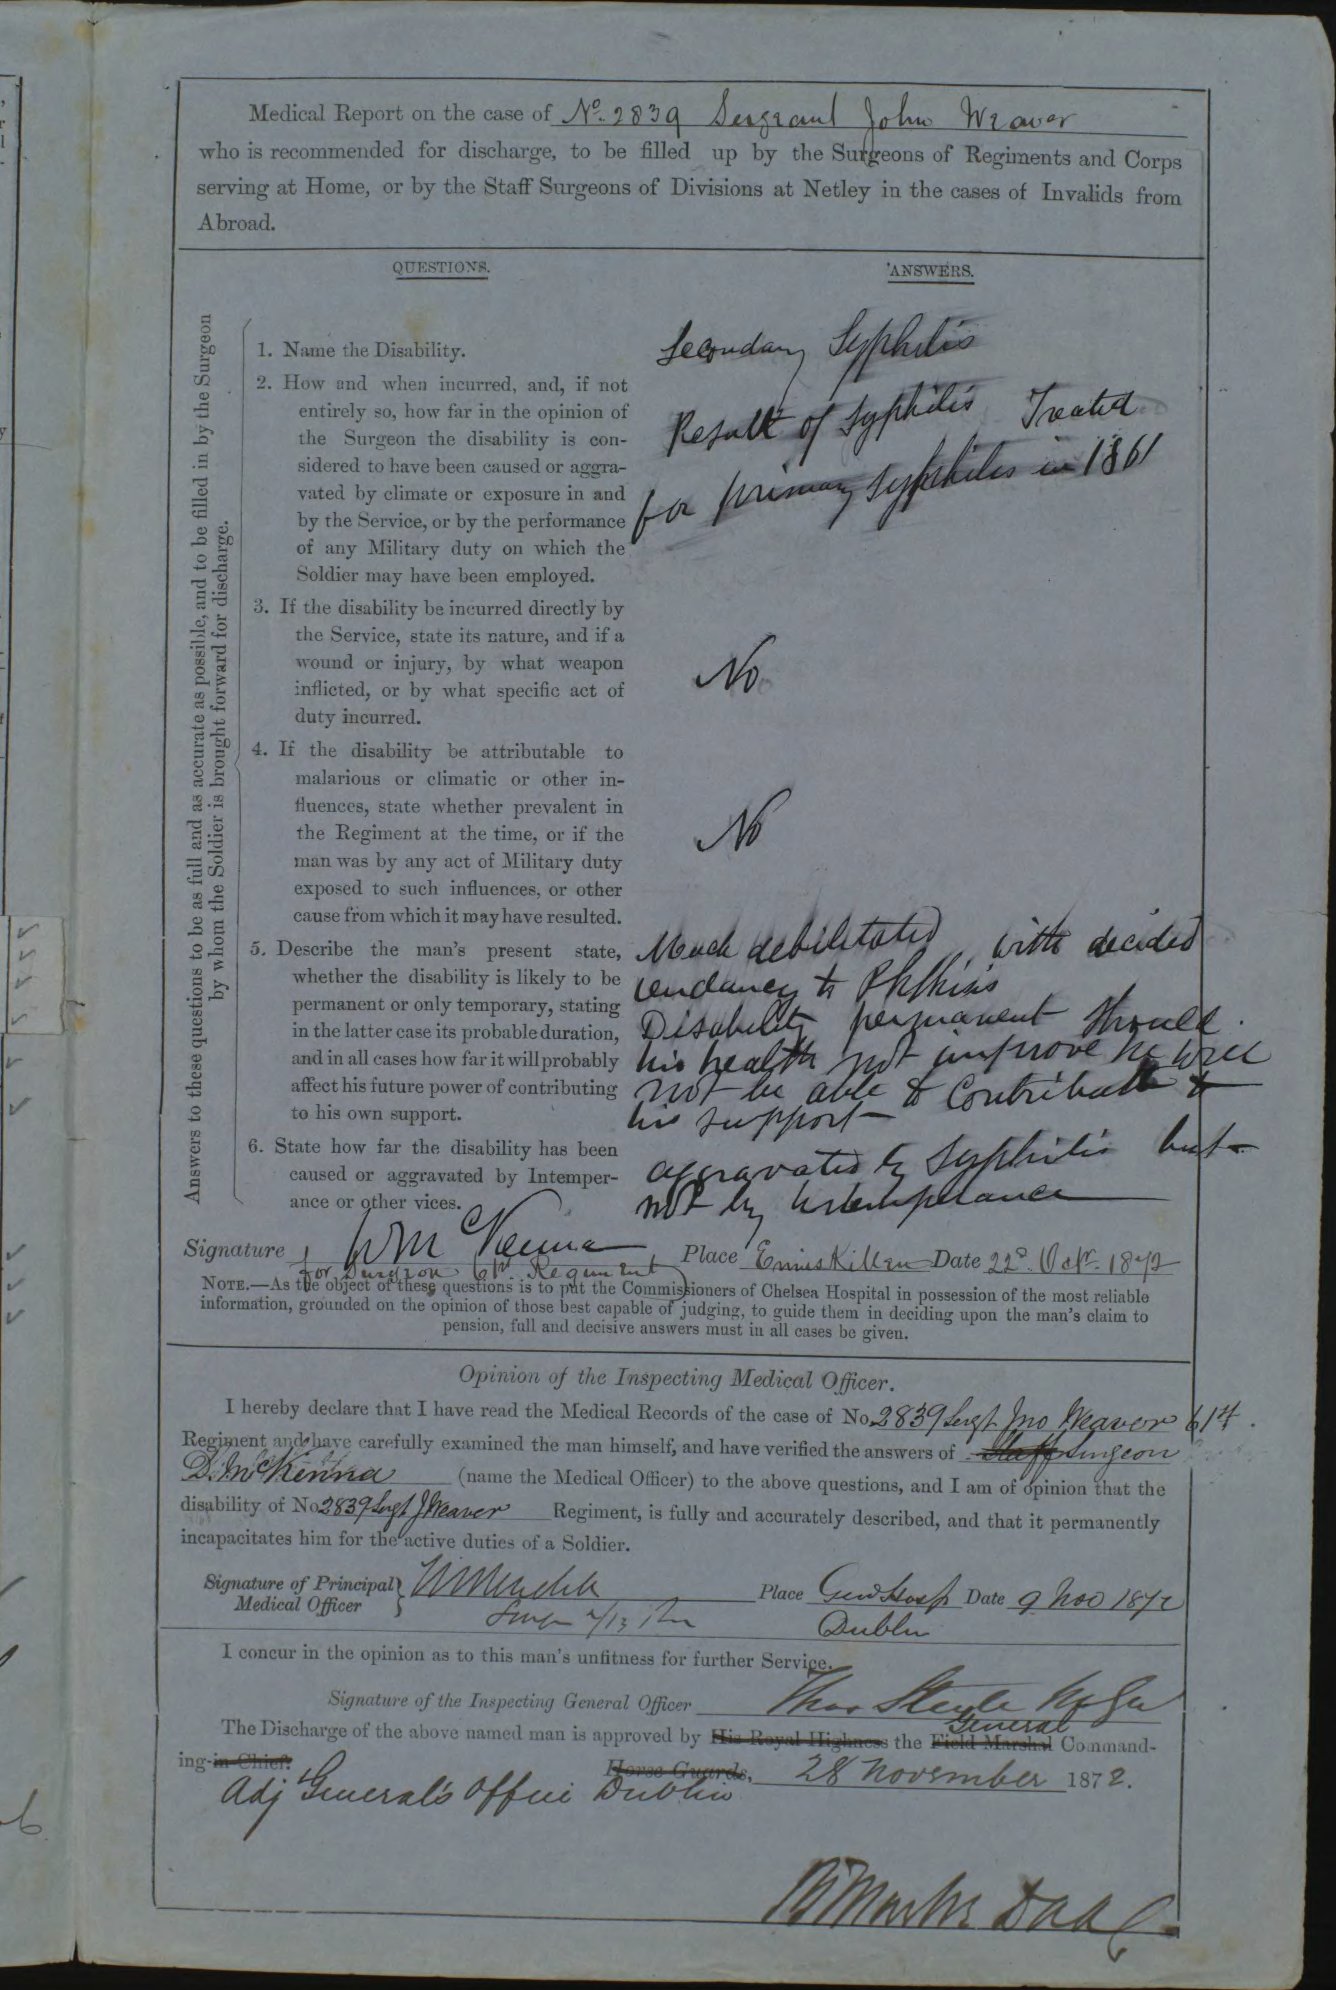 Medical Report on the case of No. 2839 Sergeant John Weaver
who is recommended for discharge, to be filled up by the Surgeons of Regiments and Corps
serving at Home, or by the Staff Surgeons of Divisions at Netley in the cases of Invalids from
Abroad.
QUESTIONS.
ANSWERS.
Answers to these questions to be as full and as accurate as possible, and to be filled in by the Surgeon
by whom the Soldier is brought forward for discharge.
1. Name the Disability.
Secondary Syphilis
2. How and when incurred, and, if not
entirely so, how far in the opinion of
the Surgeon the disability is con-
sidered to have been caused or aggra-
vated by climate or exposure in and
by the Service, or by the performance
of any Military duty on which the
Soldier may have been employed.
Result of Syphilis Treated
for primary Syphilis in 1861
3. If the disability be incurred directly by
the Service, state its nature, and if a
wound or injury, by what weapon
inflicted, or by what specific act of
duty incurred.
No
4. If the disability be attributable to
malarious or climatic or other in-
fluences, state whether prevalent in
the Regiment at the time, or if the
man was by any act of Military duty
exposed to such influences, or other
cause from which it may have resulted.
No
5. Describe the man's present state,
whether the disability is likely to be
permanent or only temporary, stating
in the latter case its probable duration,
and in all cases how far it will probably
affect his future power of contributing
to his own support.
Much debilitated, with decided
tendancy to Phthisis
Disability permanent Should
his health not improve he will
not be able to Contribute to
his support
6. State how far the disability has been
caused or aggravated by Intemper-
ance or other vices.
aggravated by Syphilis but
not by Intemperance
Signature W McKenna Place Enniskillen Date 22d. Octr. 1872
for Surgeon 61st Regiment
NOTE.—As the object of these questions is to put the Commissioners of Chelsea Hospital in possession of the most reliable
information, grounded on the opinion of those best capable of judging, to guide them in deciding upon the man's claim to
pension, full and decisive answers must in all cases be given.
Opinion of the Inspecting Medical Officer.
I hereby declare that I have read the Medical Records of the case of No 2839 Sergt Jno Weaver 61st.
Regiment and have carefully examined the man himself, and have verified the answers of Staff Surgeon
D. McKenna (name the Medical Officer) to the above questions, and I am of opinion that the
disability of No 2839 Sergt J Weaver Regiment, is fully and accurately described, and that it permanently
incapacitates him for the active duties of a Soldier.
Signature of Principal
Medical Officer
Place Genl Hosp Date 9 Nov 1872
Dublin
I concur in the opinion as to this man's unfitness for further Service.
Signature of the Inspecting General Officer Thos Steele
The Discharge of the above named man is approved by His Royal Highness the Field Marshal General Command-
ing-in Chief.
Horse Guards, 28 November 1872.
Adj General's Office Dublin
DAAG